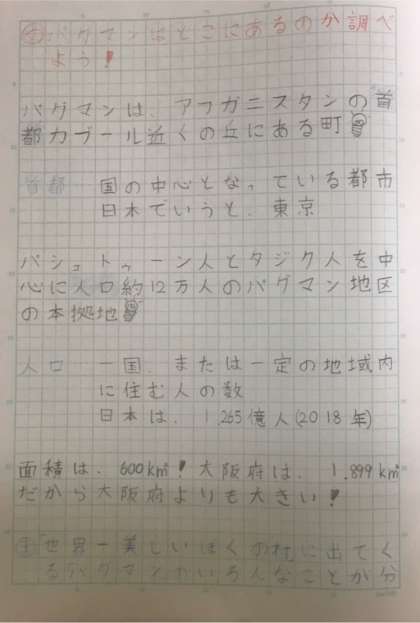 ㋱パグマンはどこにあるのか調べ
よう!
パグマンは、アフガニスタンの首
都カブール近くの丘にある町
首都 国の中心となっている都市
日本でいうと、東京
パシュトゥーン人とタジク人を中
心に人口約12万人のパグマン地区
の本拠地
人口 一国、または一定の地域内
に住む人の数
日本は、1.265億人(2018年)
面積は、600km²!大阪府は、1.899km²
だから大阪府よりも大きい!
世界一美しいぼくの村に出てく
るパグマンのいろんなことが分